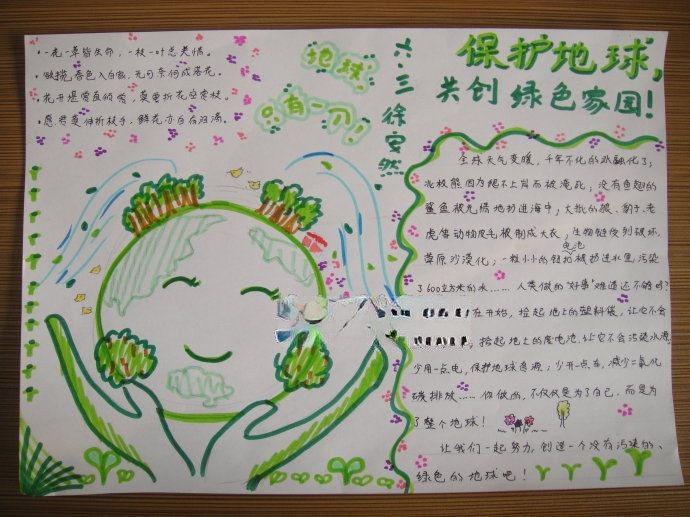 ·一花一草皆生命,一枝一叶总关情。
·
·花开堪赏直须赏,莫要折花空赏枝。
·愿君莫伸折枝手,鲜花方自有泪滴。
地球
只有一个!
六.三 徐安然.
保护地球,
共创绿色家园!
全球天气变暖,千年不化的冰融化了,
北极熊因为爬不上岸而被淹死;没有鱼翅的
鲨鱼被无情地扔进海中;大批的狼、豹子、老
虎等动物皮毛被制成大衣,生物链受到破坏,
草原沙漠化;一粒小小的钮扣电池被扔进水里,污染
了600立方米的水……人类做的"好事"难道还不够吗?
在开始,捡起地上的塑料袋,让它不会
拾起地上的废电池,让它不会污染水源,
少用一点电,保护地球资源,少开一点车,减少二氧化
碳排放……你做的,不仅仅是为了自己,而是为
了整个地球!
让我们一起努力,创造一个没有污染的、
绿色的地球吧!